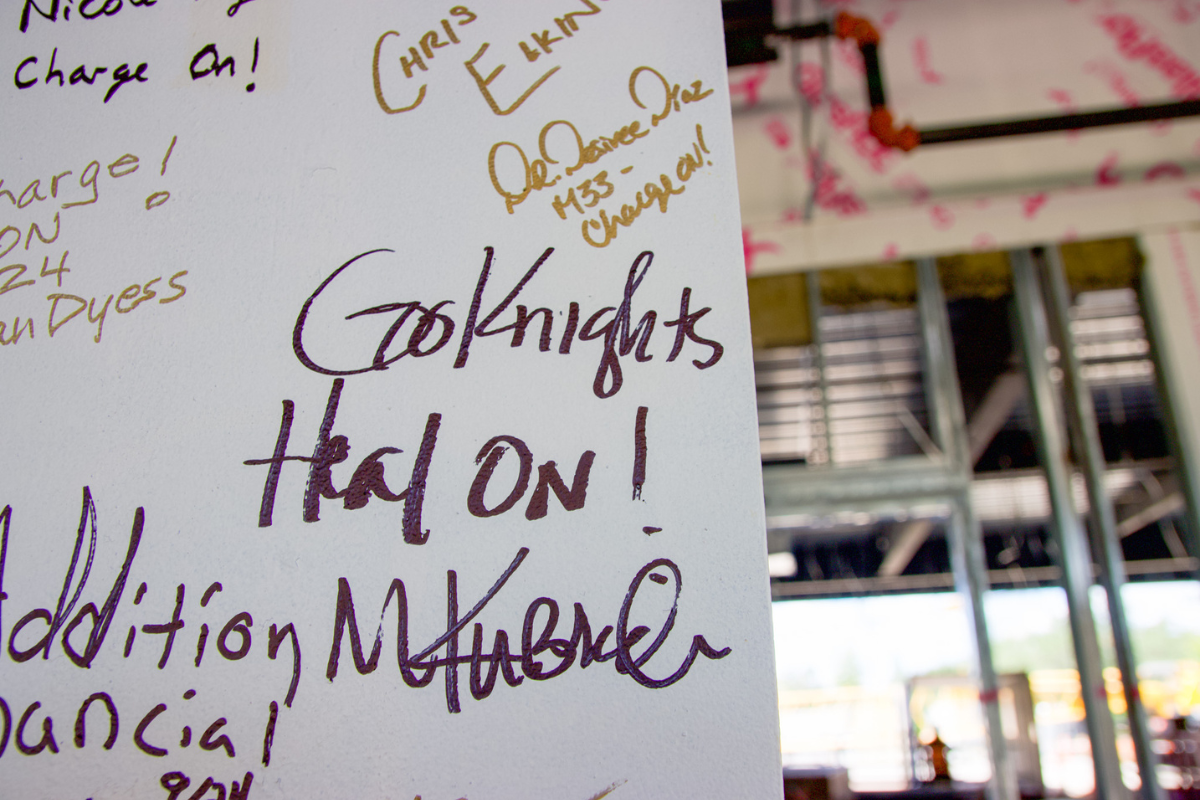 Charge On!
CHRIS
ELKIN
Dr. Desiree Diaz
M33 -
Charge on!
harge!
ON
24
an Dyess
Go Knights
Heal ON!
Addition
ancial
9/24